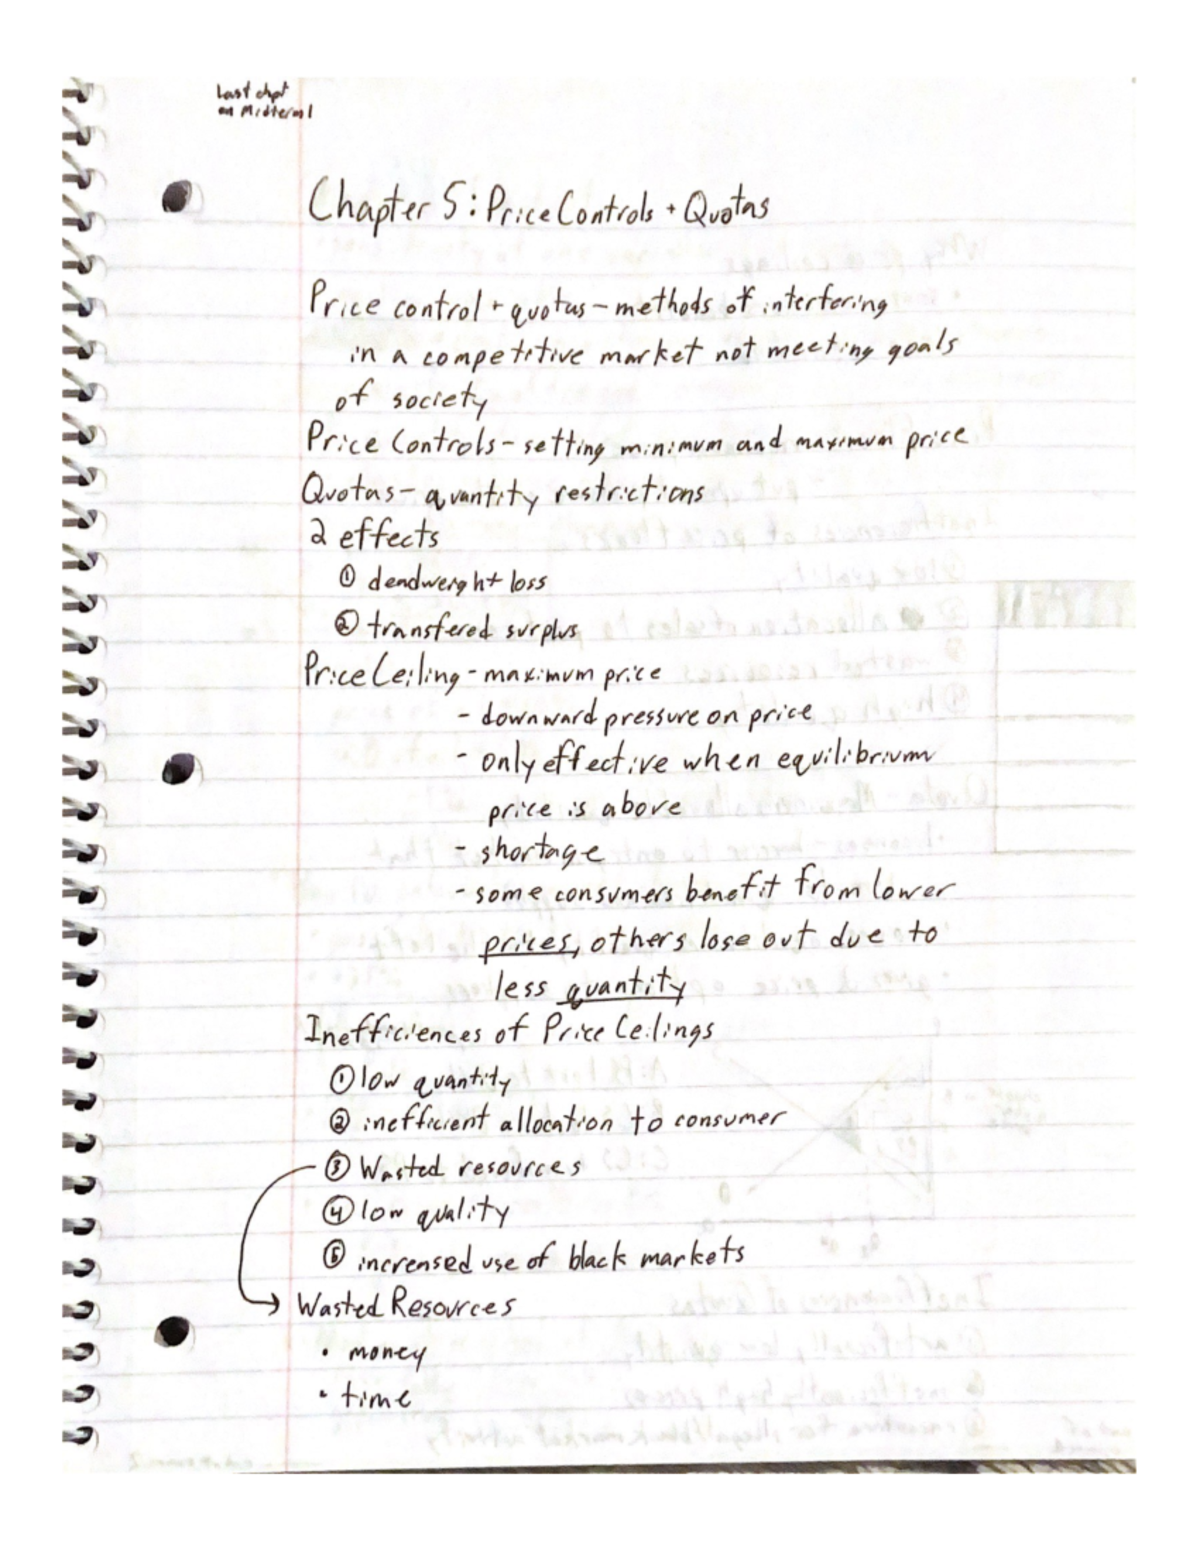 Last chpt
on Midterm 1
Chapter 5: Price Controls + Quotas
Price control + quotas - methods of interfering
in a competitive market not meeting goals
of society
Price Controls - setting minimum and maximum price
Quotas - quantity restrictions
2 effects
① deadweight loss
② transfered surplus
Price Ceiling - maximum price
- downward pressure on price
- only effective when equilibrium
price is above
- shortage
- some consumers benefit from lower
prices, others lose out due to
less quantity
Inefficiences of Price Ceilings
① low quantity
② inefficient allocation to consumer
③ Wasted resources
④ low quality
⑤ increased use of black markets
Wasted Resources
• money
• time